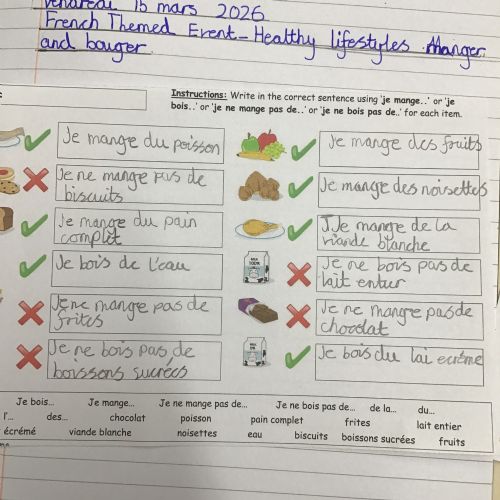 Vendredi 15 mars 2026
French Themed Event - Healthy lifestyles. Manger
and bouger.
Instructions: Write in the correct sentence using 'je mange..' or 'je
bois..' or 'je ne mange pas de..' or 'je ne bois pas de..' for each item.
Je mange du poisson
Je mange des fruits
Je ne mange pas de
biscuits
Je mange des noisettes
Je mange du pain
complet
JJe mange de la
viande blanche
Je bois de l'eau
Je ne bois pas de
lait entier
Je ne mange pas de
frites
Je ne mange pas de
chocolat
Je ne bois pas de
boissons sucrées
Je bois du lai ecrémé
Je bois... Je mange... Je ne mange pas de... Je ne bois pas de... de la... du...
l'... des... chocolat poisson pain complet frites lait entier
écrémé viande blanche noisettes eau biscuits boissons sucrées fruits